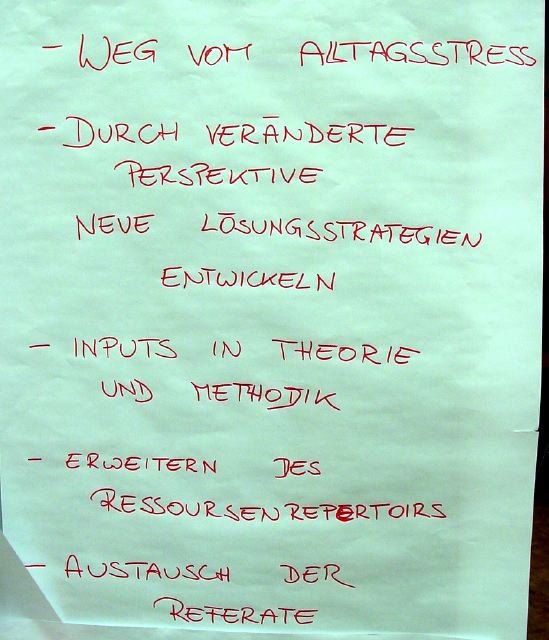 - WEG VOM ALLTAGSSTRESS
- DURCH VERÄNDERTE
PERSPEKTIVE
NEUE LÖSUNGSSTRATEGIEN
ENTWICKELN
- INPUTS IN THEORIE
UND METHODIK
- ERWEITERN DES
RESSOURSENREPERTOIRS
- AUSTAUSCH DER
REFERATE